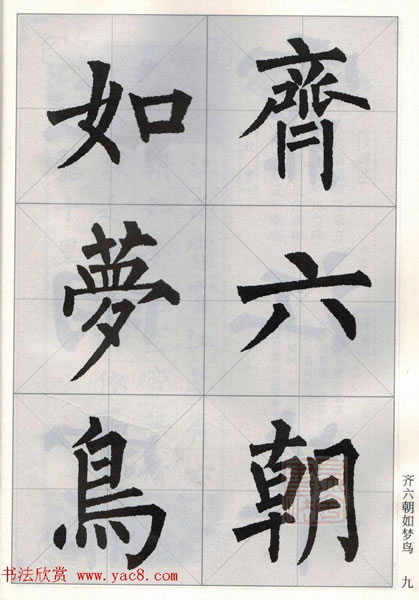 齊六朝
如夢鳥
齐六朝如梦鸟 九
书法欣赏 www.yac8.com